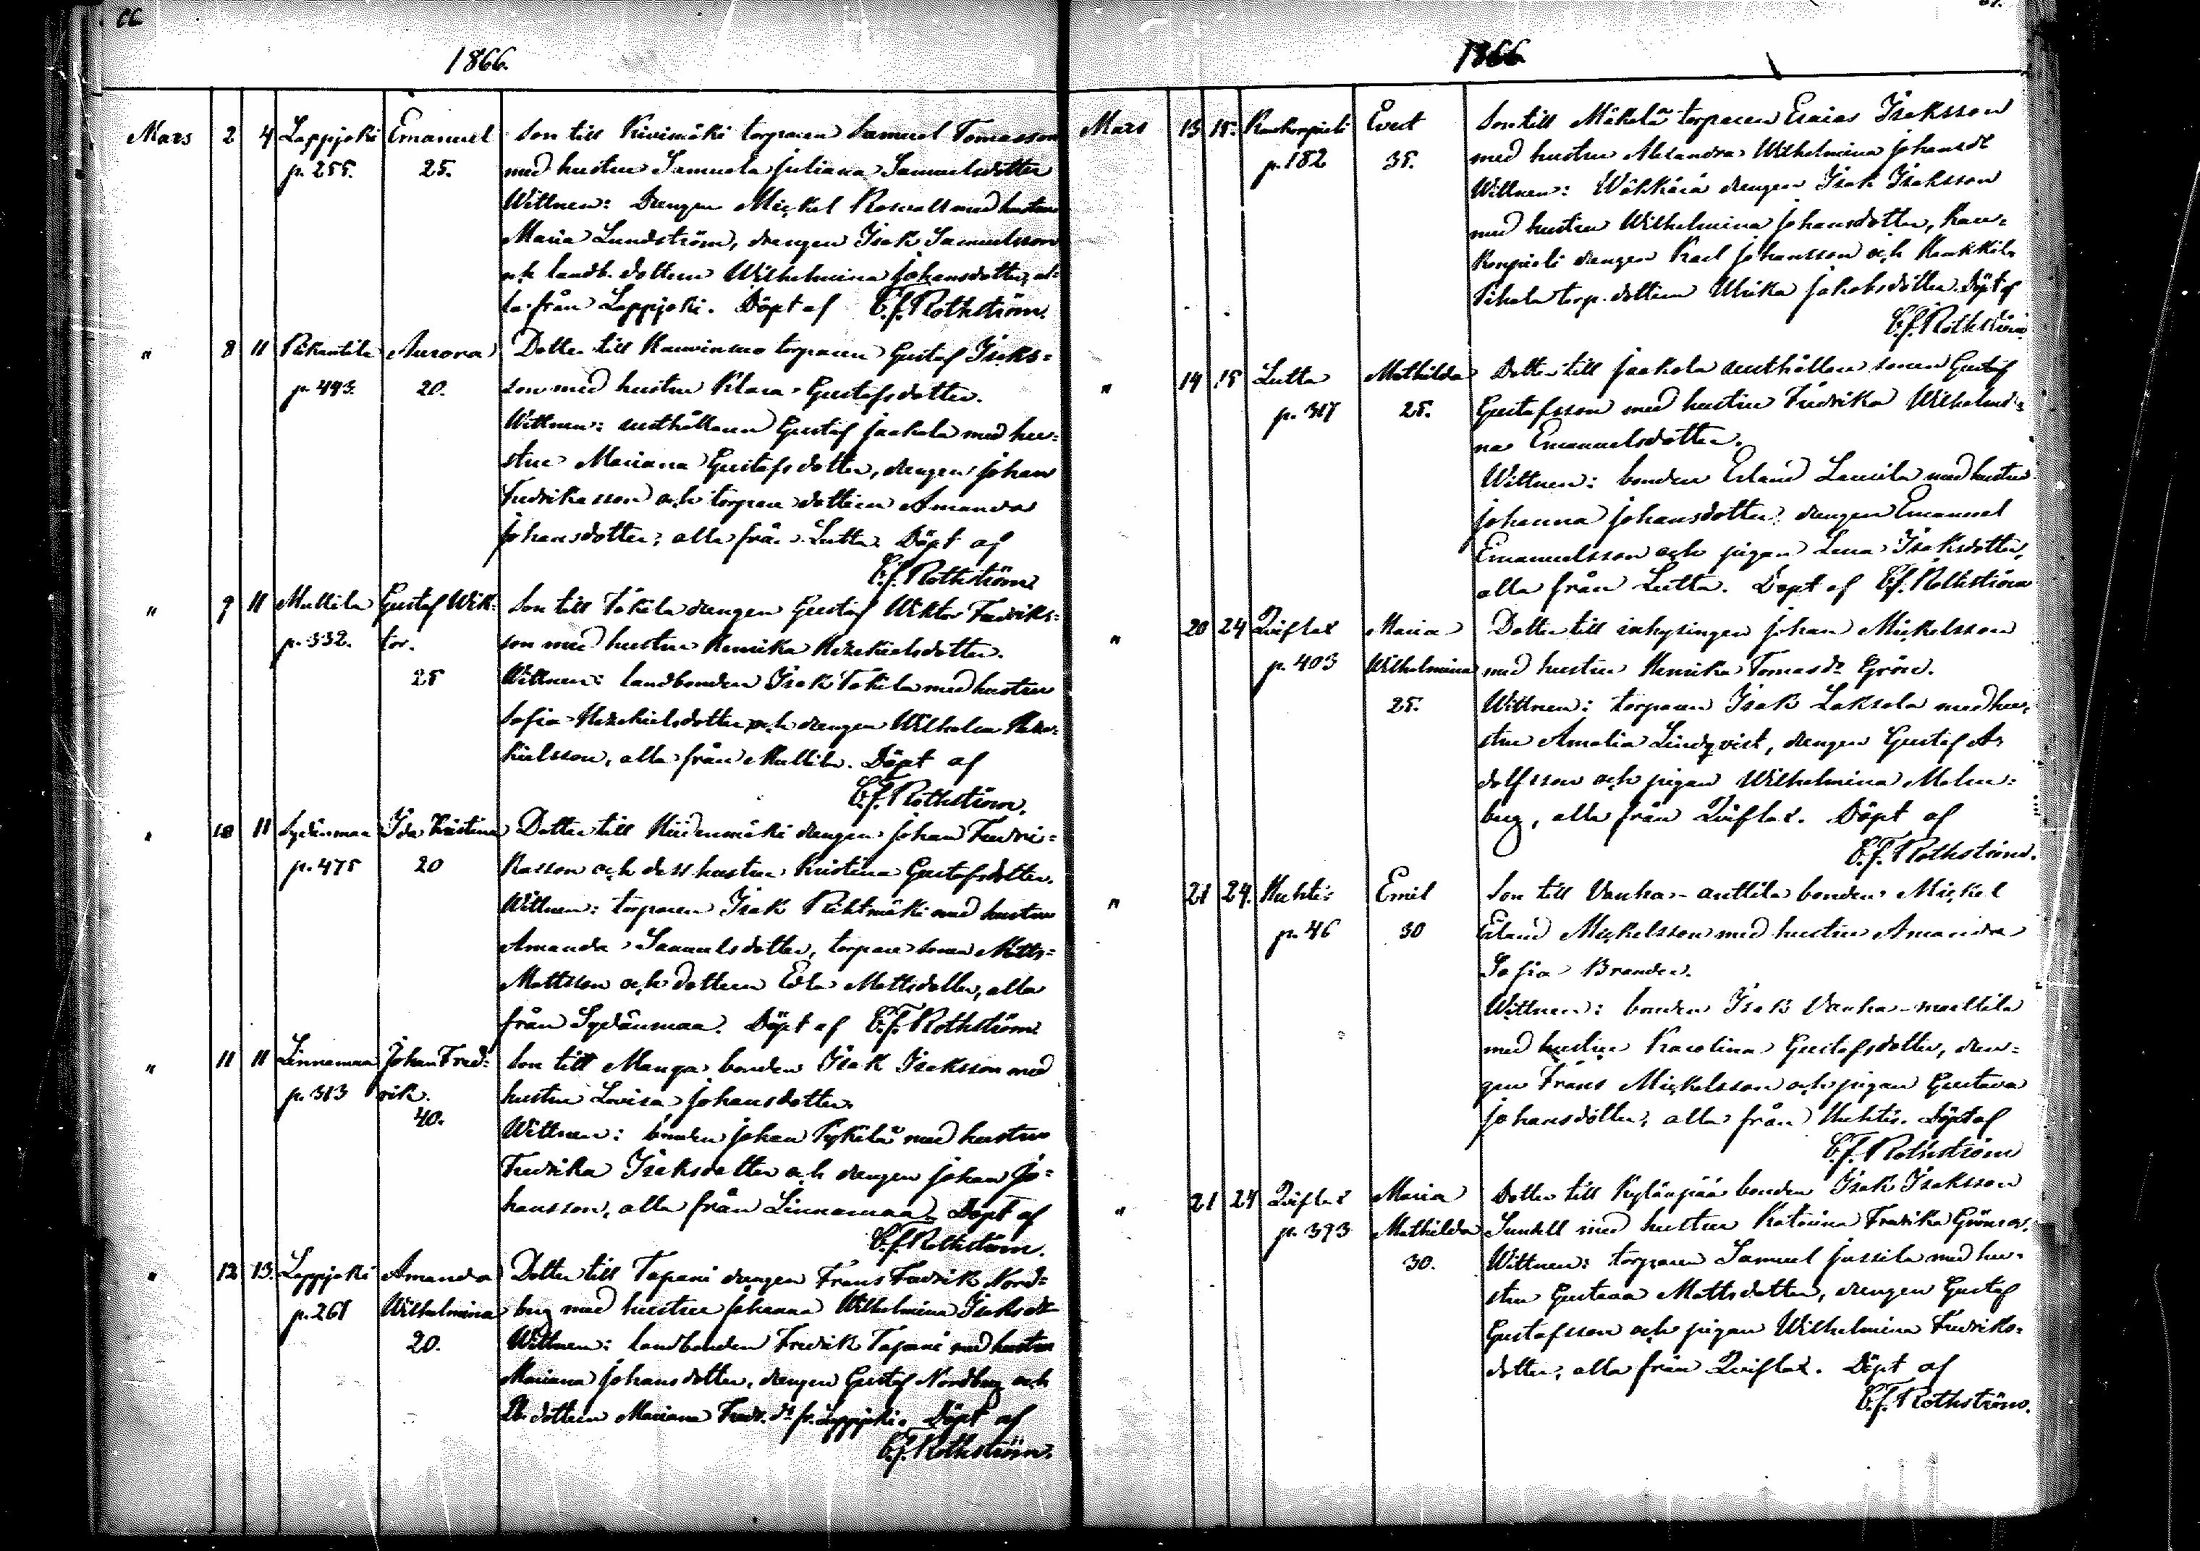 66
1866.
Mars 2 4 Lappjoki Emanuel Son till Kivimäki torparen Samuel Tomasson
p. 255. 25. med hustru Samuela Juliana Samuelsdotter
Wittnen: Drengen Mickel Rosvall med hustru
Maria Lundström, drengen Isak Samuelsson
och landb. dottern Wilhelmina Johansdotter, al-
la från Lappjoki. Döpt af C. J. Rothström.
" 8 11 Aurora Dotter till torparen Gustaf Isaks-
p. 493. 20. son med hustru Klara Gustafsdotter.
Wittnen: rusthållaren Gustaf Jaakola med hu-
stru Mariana Gustafsdotter, drengen Johan
Fredriksson och torpare dottern Amanda
Johansdotter, alla från Lutta. Döpt af
C. J. Rothström
" 9 11 Mullila Gustaf Wik- Son till Tökila drengen Gustaf Wiktor Fredriks-
p. 332. tor. son med hustru Henrika Hezekielsdotter.
25 Wittnen: landbonden Isak Tökila med hustru
Sofia Hezekielsdotter och drengen Wilhelm Heze-
kielsson, alla från Mullila. Döpt af
C. J. Rothström.
" 10 11 Sydänmaa Ida Kristina Dotter till Hiidenmäki drengen Johan Fredri-
p. 475 20 kasson och dess hustru Kristina Gustafsdotter.
Wittnen: torparen Isak med hustru
Amanda Samuelsdotter, torpare sonen Matts
Mattsson och dottern Edla Mattsdotter, alla
från Sydänmaa. Döpt af C. J. Rothström
" 11 11 Linnamaa Johan Fred- Son till Manga bonden Isak Isaksson med
p. 313 rik. hustru Lovisa Johansdotter.
40. Wittnen: bonden Johan Kykilä med hustru
Fredrika Isaksdotter och drengen Johan Jo-
hansson, alla från Linnamaa. Döpt af
C. J. Rothström.
" 12 13. Lappjoki Amanda Dotter till Tapani drengen Frans Fredrik Nord-
p. 261 Wilhelmina berg med hustru Johanna Wilhelmina Isaksdr
20. Wittnen: landbonden Fredrik Tapani med hustru
Mariana Johansdotter, drengen Gustaf Nordberg och
lb. dottern Mariana Fredr. dr fr. Lappjoki. Döpt af
C. J. Rothström.
1866
Mars 13 18. Evert Son till Mäkelä torparen Esaias Isaksson
p. 182 35. med hustru Alexandra Wilhelmina Johansdr
Wittnen: Wäkkärä drengen Isak Isaksson
med hustru Wilhelmina Johansdotter,
drengen Karl Johansson och
torp. dottern Ulrika Jakobsdotter. Döpt af
C. J. Rothström
" 14 18 Lutta Mathilda Dotter till Jaakola rusthållare sonen Gustaf
p. 317 25. Gustafsson med hustru Fredrika Wilhelmi-
na Emanuelsdotter.
Wittnen: bonden Erland Laurila med hustru
Johanna Johansdotter, drengen Emanuel
Emanuelsson och pigan Lena Isaksdotter,
alla från Lutta. Döpt af C. J. Rothström
" 20 24 Qviflax Maria Dotter till inhysingen Johan Mickelsson
p. 403 Wilhelmina med hustru Henrika Tomasdr Grön.
25. Wittnen: torparen Isak Laksola med hu-
stru Amalia Lindqvist, drengen Gustaf A-
dolfsson och pigan Wilhelmina Malm-
berg, alla från Qviflax. Döpt af
C. J. Rothström.
" 21 24. Huhtis Emil Son till Vanha-anttila bonden Mickel
p. 46 30 Erland Mickelsson med hustru Amanda
Sofia Brander.
Wittnen: bonden Isak Vanha-marttila
med hustru Karolina Gustafsdotter, dren-
gen Frans Mickelsson och pigan Gustava
Johansdotter, alla från Huhtis. Döpt af
C. J. Rothström
" 21 24 Qviflax Maria Dotter till Kylänpää bonden Isak Isaksson
p. 393 Mathilda Sundell med hustru Katarina Fredrika Grönroos.
30. Wittnen: torparen Samuel Jussila med hu-
stru Gustava Mattsdotter, drengen Gustaf
Gustafsson och pigan Wilhelmina Fredriks-
dotter, alla från Qviflax. Döpt af
C. J. Rothström.